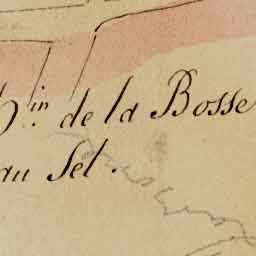 h.in de la Bosse
au Sel.